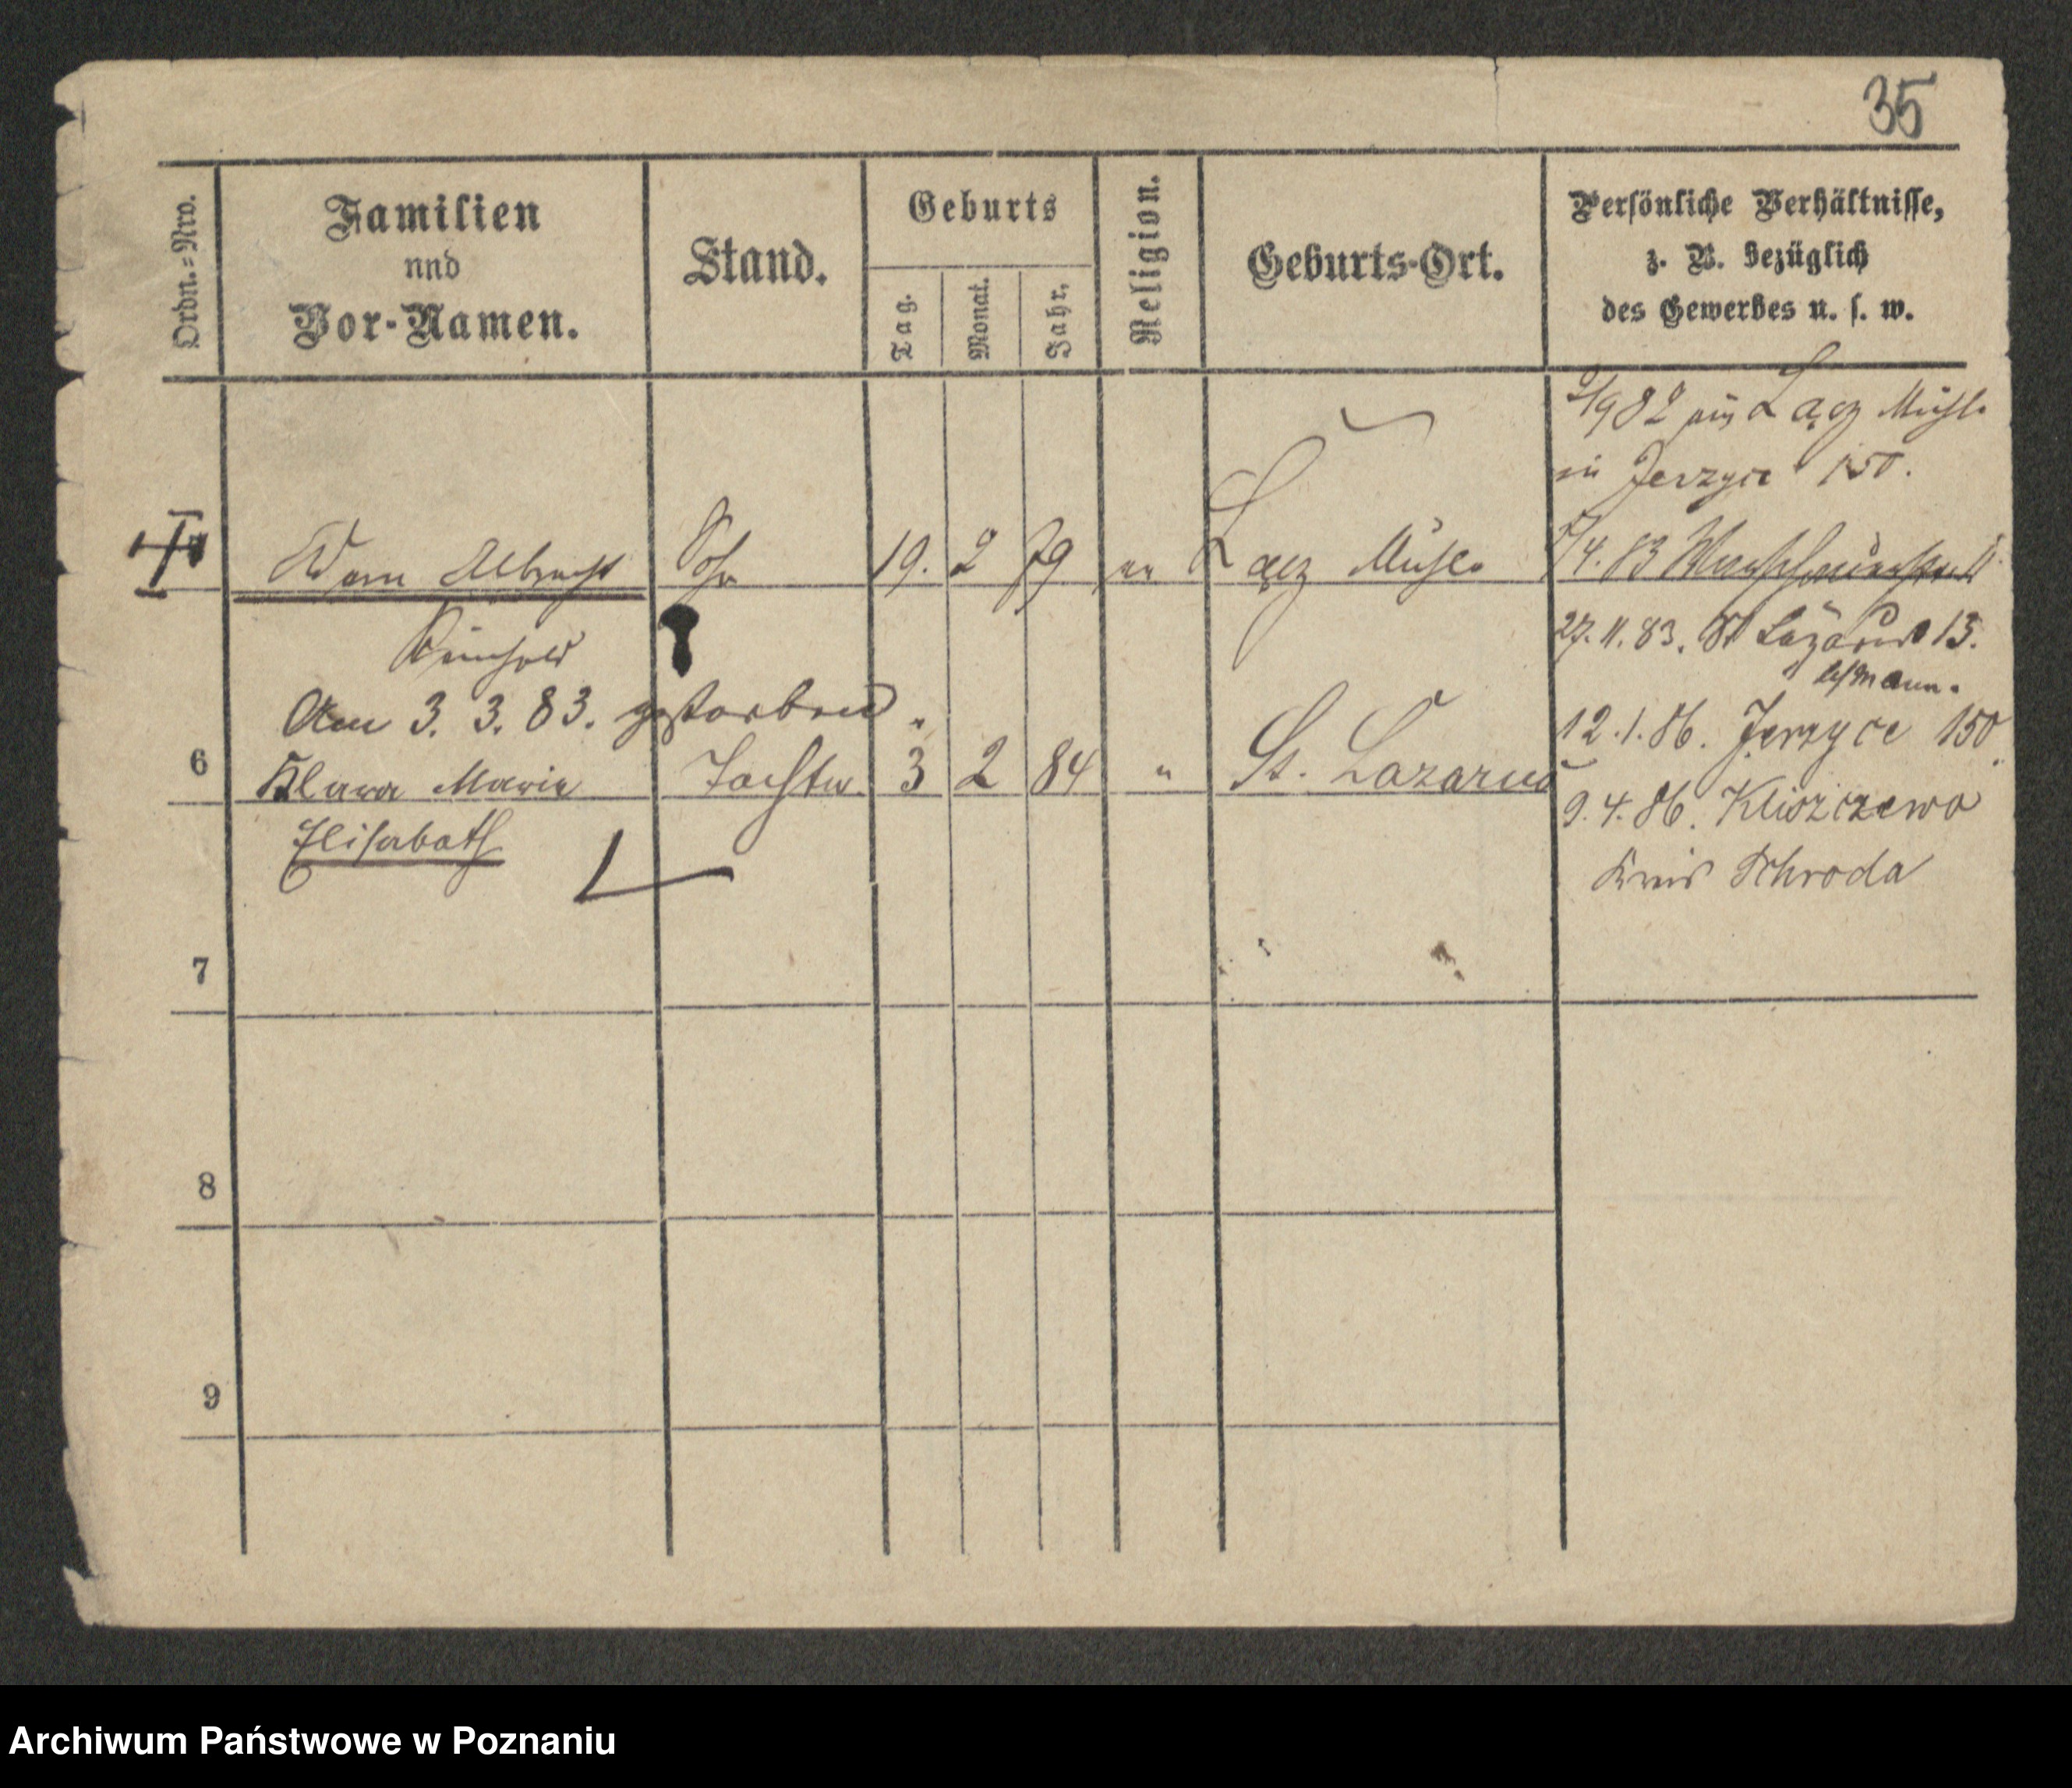 35
Ordn.=Nro.
Familien
und
Vor-Namen.
Stand.
Geburts
Tag.
Monat.
Jahr.
Religion.
Geburts-Ort.
Persönliche Verhältnisse,
z. B. bezüglich
des Gewerbes u. s. w.
Albrecht Sohn 19. 2 79 Lącz Mühle
Reinhold
Am 3. 3. 83. gestorben
6 Klara Maria Tochter 3 2 84 " St. Lazarus
Elisabeth
9/9 82 aus Lącz Mühle
in Jerzyce 150.
4. 83
27. 11. 83. St Lazarus 13.
12. 1. 86. Jerzyce 150
9. 4. 86. Kliszczewo
Kreis Schroda
7
8
9
Archiwum Państwowe w Poznaniu